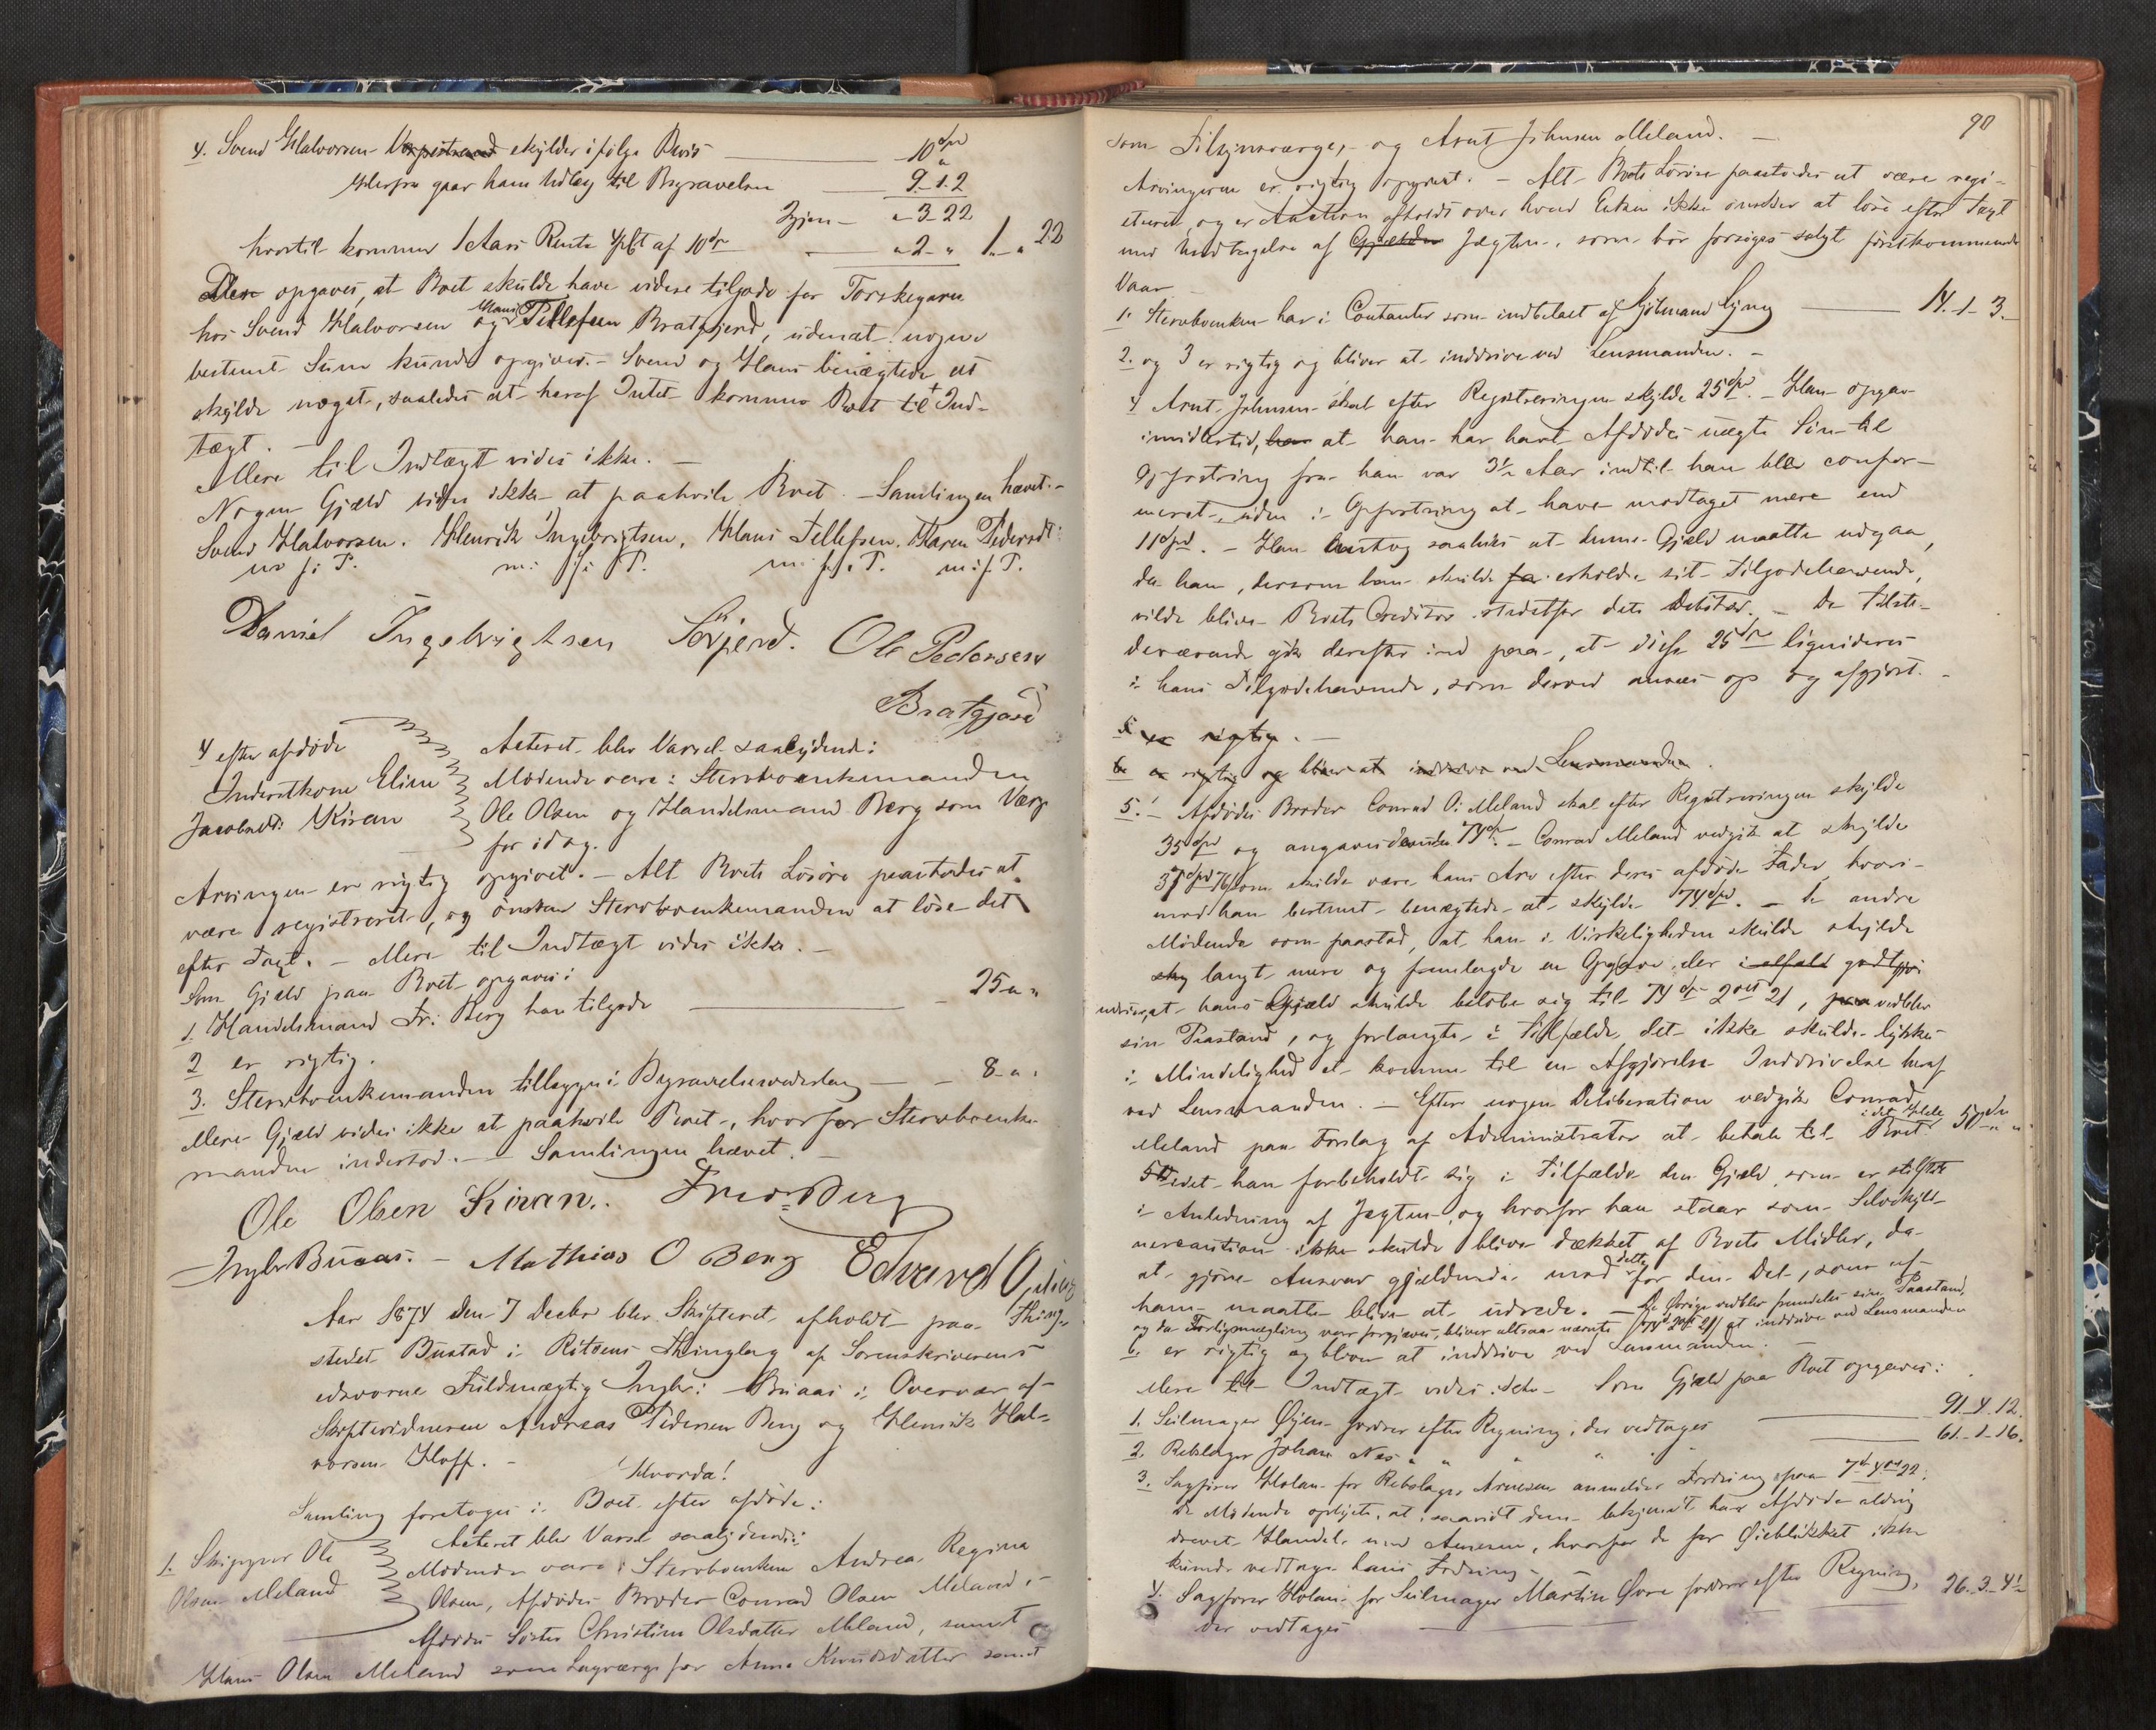 4. Svend Halvorsen skylder ifølge Bevis — 10 spd "
Herfra gaar hans Udlæg til Begravelsen — 9. 1. 2
Igjen — " 3 22
hvortil kommer 1 Aars Rente 4pCt af 10 spd — " 2 " 1 " 22
Der opgaves, at Boet skulde have videre tilgode for Torskegarn
hos Svend Halvorsen og Hans Tellefsen Bratgjerd, udenat nogen
bestemt Sum kunde opgives. – Svend og Hans benægtede at
skylde noget, saaledes at heraf Intet kommer Boet til Ind-
tægt. –
Mere til Indtægt vides ikke. –
Nogen Gjæld vides ikke at paahvile Boet. – Samlingen hævet. –
Svend Halvorsen. Henrik Ingebrigtsen, Hans Tellefsen. Karen Pedersdt:
m. f. P. m: f: P. m: f: P. m: f. P.
Daniel Ingebrigtsen Ole Pedersen
Bratgjerd
4 efter afdøde
Inderstkone Elen
Jacobsdt: Kiran
Acteret blev Varsel saalydende:
Mødende vare: Stervboenkemanden
Ole Olsen og Handelsmand Berg som Værge
for idag.
Arvingen er rigtig opgivet. – Alt Boets Løsøre paastodes at
være registreret, og ønsker Stervboenkemanden at løse det
efter Taxt. – Mere til Indtægt vides ikke. –
Som Gjæld paa Boet opgaves:
1. Handelsmand Fr: Berg har tilgode — 25 " "
2 er rigtig.
3. Stervboenkemanden tillægges i Begravelsesvederlag — 8 " "
Mere Gjæld vides ikke at paahvile Boet, hvorfor Stervboenke-
manden indestod. – Samlingen hævet. –
Ole Olsen Kiran. Fred= Berg
Ingbr Buaas. – Mathias O Berg Edvard
Aar 1874 den 7 Decbr blev Skifteret afholdt paa Thing-
stedet Bustad i Ritsens Thinglag af Sorenskriverens
edsvorne Fuldmægtig Ingbr: Buaas i Overvær af
Skiftevidnerne Andreas Pedersen Berg og Henrik Hal-
vorsen Hoff. –
Hvorda!
Samling foretoges i Boet efter afdøde:
1. Skipper Ole
Olsen Meland
Acteret blev Varsel saalydende:
Mødende vare: Stervboenken Andrea Regina
Olsen, Afdødes Broder Conrad Olsen Meland, –
Afdødes Søster Christine Olsdatter Meland, samt
Hans Olsen Meland som Lagværge for Anne Knudsdatter samt
90
som Tilsynsværge, og Arnt Johnsen Meland. –
Arvingerne er rigtig opgivet. – Alt Boets Løsøre paastodes at være regi-
streret, og er Auction afholdt over hvad Enken ikke ønsker at løse efter Taxt
med Undtagelse af Jægten, som bør forsøges solgt førstkommende
Vaar –
1. Stervboenken har i Contanter som indbetalt af — 14. 1. 3.
2. og 3 er rigtig og bliver at inddrive ved Lensmanden. –
4 Arnt Johnsen skal efter Registreringen skylde 25 spd. – Han opgav
imidlertid, at han har havt Afdødes uægte Søn til
Opfostring fra han var 3½ Aar indtil han blev confir-
meret, uden i Opfostring at have modtaget mere end
11 spd. – Han antog saaledes at denne Gjæld maatte udgaa,
da han, dersom han skulde erholde sit Tilgodehavende,
vilde blive Boets Creditor istedetfor dets Debitor. – De Tilste-
deværende gik derefter ind paa, at disse 25 spd liquideres
i hans Tilgodehavende, som derved ansees op og afgjort. –
5 er rigtig. –
6 er rigtig og bliver at inddrive ved Lensmanden.
5. – Afdødes Broder Conrad O: Meland skal efter Registreringen skylde
35 spd og angaves desuden 74 spd. – Conrad Meland vedgik at skylde
som skulde være hans Arv efter deres afdøde Fader, hvori-
mod han bestemt benægtede at skylde 74 spd. – De andre
Mødende som paastod, at han i Virkeligheden skulde skylde
langt mere og fremlagde en Opgave, der
at hans Gjæld skulde beløbe sig til 74 spd 2 ort 21, vedblev
sin Paastand, og forlangte i Tilfælde det ikke skulde lykkes
i Mindelighed at komme til en Afgjørelse Inddrivelse heraf
ved Lensmanden. – Efter nogen Deliberation vedgik Conrad
Meland paa Forslag af Administrator at betale til Boet i det Hele 50 spd " "
idet han forbeholdt sig i Tilfælde den Gjæld, som er stiftet
i Anledning af Jægten, og hvorfor han staar som Selvskyld-
nercaution ikke skulde blive dækket af Boets Midler, da
at gjøre Ansvar gjældende mod dette for den Del, som af
ham maatte blive at udrede. – De øvrige vedblev fremdeles sin Paastand,
og da Forligsmægling var forgjæves, bliver altsaa nævnte (74 spd 2 ort 21) at inddrive ved Lensmanden
6. er rigtig og bliver at inddrive ved Lensmanden. –
Mere til Indtægt vides ikke – Som Gjæld paa Boet opgaves:
1. Seilmager Øyen fordrer efter Regning, der vedtages — 91. 4. 12.
2. Rebslager Johan Næs " " " — 61. 1. 16.
3. Sagfører Holam for Rebslager Arnesen anmelder Fordring stor 7 spd 4 ort 22.
De Mødende oplyste, at, saavidt dem bekjendt har Afdøde aldrig
drevet Handel med Arnesen, hvorfor de for Øieblikket ikke
kunde vedtage hans Fordring –
4. Sagfører Holam for Seilmager Martin Øvre fordrer efter Regning, 26. 3. 4½
der vedtages —